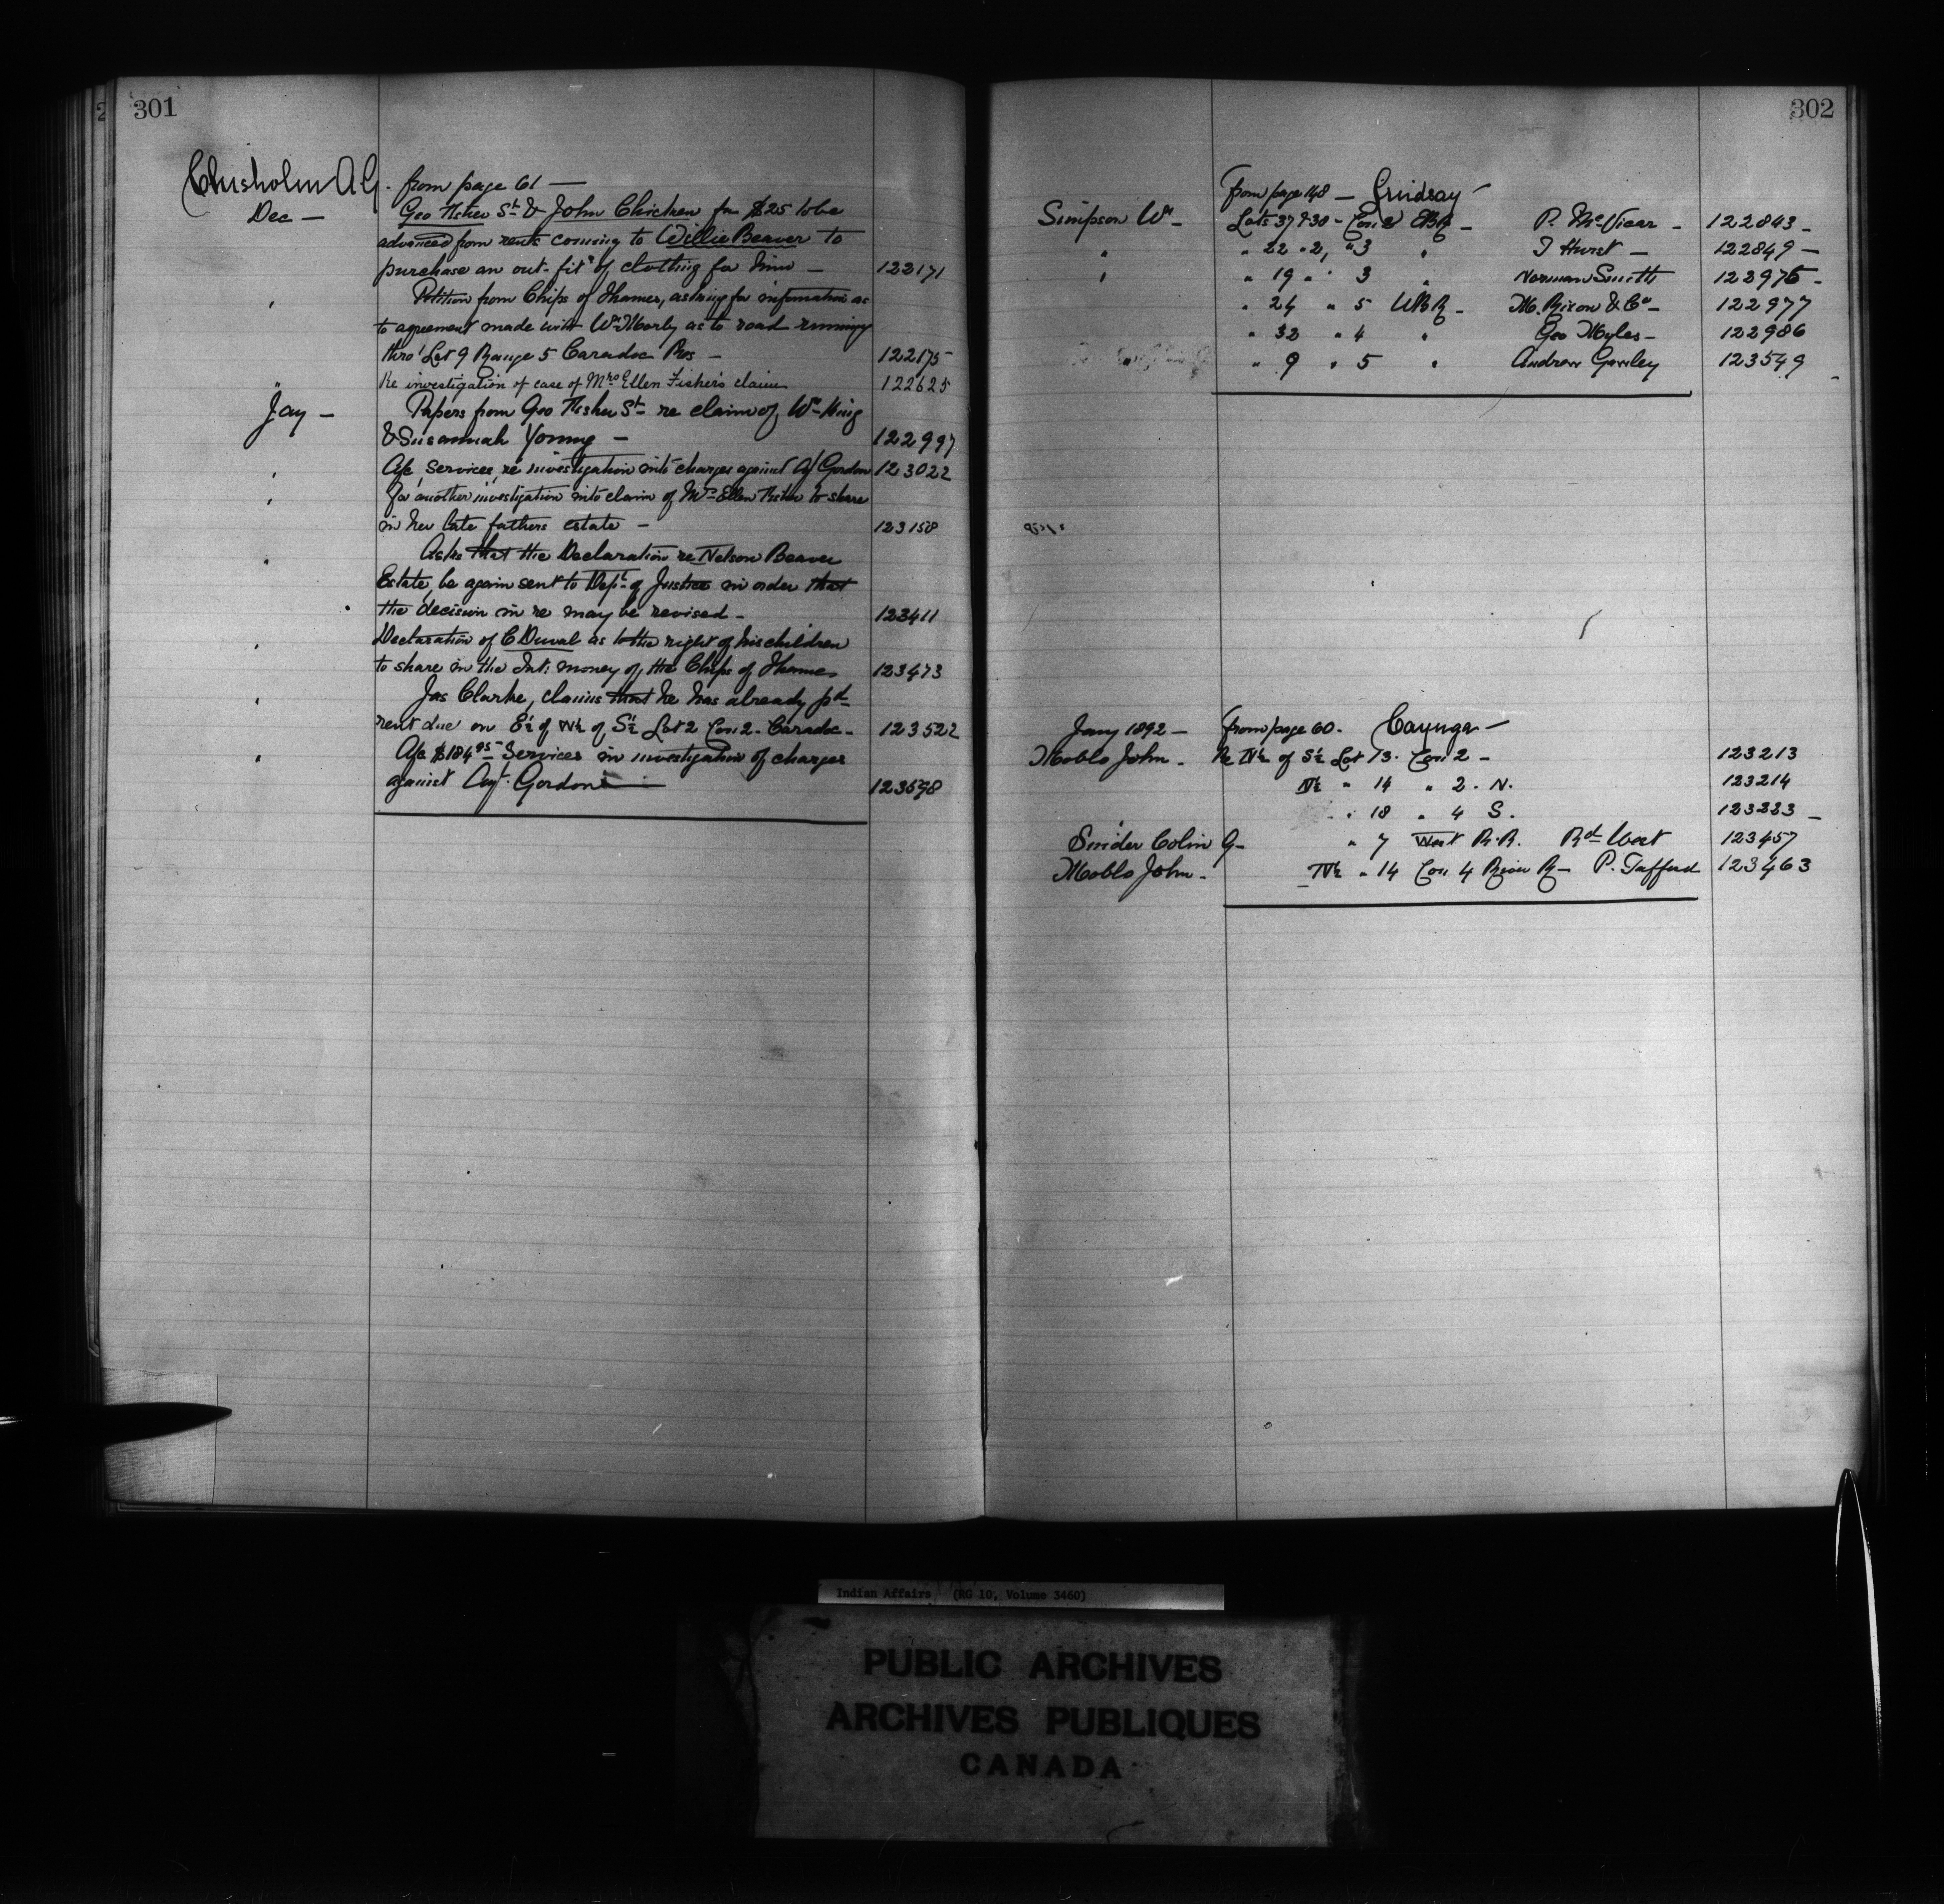 301
Chisholm A G. from page 61 —
Dec — Geo Fisher Sr & John Chicken for $25 to be
advanced from rents coming to Willie Beaver to
purchase an out-fit of clothing for him — 122171
" Petition from Chips of Thames, asking for information as
to agreement made with Wm Morly as to road running
thro' Lot 9 Range 5 Caradoc Res — 122175
" Re investigation of case of Mrs Ellen Fisher's claim 122625
Jay — Papers from Geo Fisher Sr re claim of Wm King
& Susannah Young — 122997
" A/c Services re investigation into charges against A/ Gordon 123022
" For another investigation into claim of Mrs Ellen Fisher to share
in her late fathers estate — 123158
" Asks that the Declaration re Nelson Beaver
Estate, be again sent to Dept of Justice in order that
the decision in re may be revised — 123411
" Declaration of C Duval as to the right of his children
to share in the Int: money of the Chips of Thames 123473
" Jas Clarke, claims that he has already pd
rent due on E½ of N½ of S½ Lot 2 Con 2 - Caradoc - 123522
" A/c $184.95 Services in investigation of charges
against Agt. Gordon — 123698
302
from page 148 — Lindsay —
Simpson Wm — Lots 37 & 30 - Con 2 EBR — P. McVicar — 122843 —
" " 22 " 2, " 3 " T Hurst — 122849 —
" " 19 " " 3 " Norman Smith 122976 —
" 24 " 5 WBR — M. Rixon & Co — 122977
" 32 " 4 " Geo Myles — 122986
" 9 " 5 " Andrew Gawley 123549
Jany 1892 — from page 60. Cayuga —
Moblo John — Re N½ of S½ Lot 13. Con 2 — 123213
N½ " 14 " 2. N. 123214
" 18 " 4 S. 123223 —
Snider Colin G — " 7 West R.R. Rd West 123457
Moblo John — N½ " 14 Con 4 River R — P. Tafford 123463
Indian Affairs (RG 10, Volume 3460)
PUBLIC ARCHIVES
ARCHIVES PUBLIQUES
CANADA